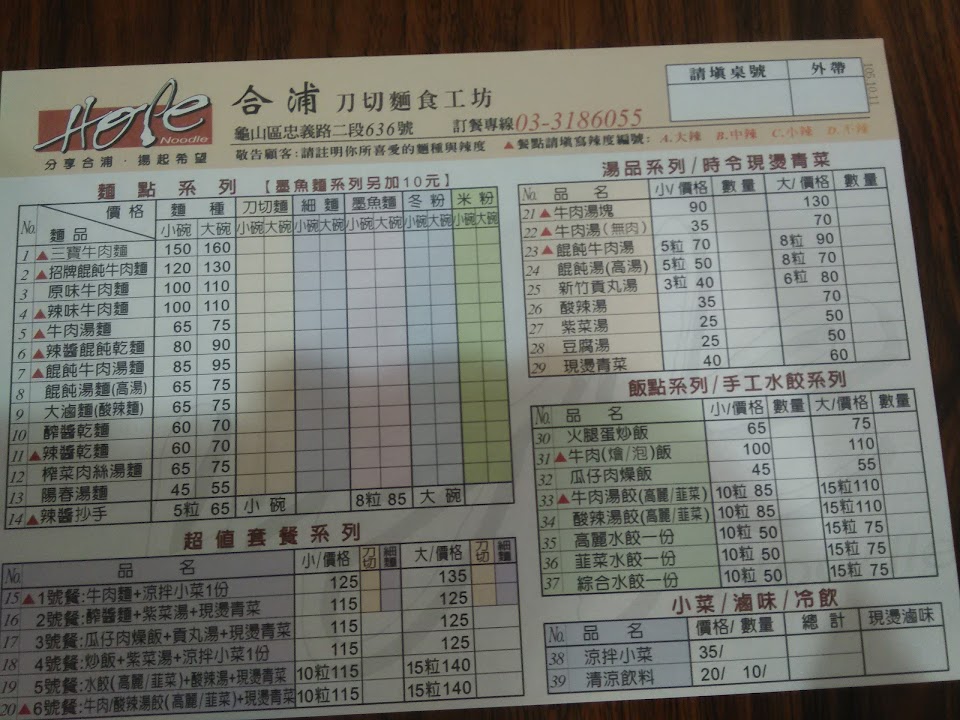 Hope
Noodle
分享合浦·揚起希望
合浦 刀切麵食工坊
龜山區忠義路二段636號 訂餐專線03-3186055
敬告顧客:請註明你所喜愛的麵種與辣度 ▲餐點請填寫辣度編號: A.大辣 B.中辣 C.小辣 D.不辣
請填桌號 外帶
麵點系列 【墨魚麵系列另加10元】
No. 麵品 價格 麵種 刀切麵 細麵 墨魚麵 冬粉 米粉
小碗 大碗 小碗 大碗 小碗 大碗 小碗 大碗 小碗 大碗 小碗 大碗
1 ▲三寶牛肉麵 150 160
2 ▲招牌餛飩牛肉麵 120 130
3 原味牛肉麵 100 110
4 ▲辣味牛肉麵 100 110
5 ▲牛肉湯麵 65 75
6 ▲辣醬餛飩乾麵 80 90
7 ▲餛飩牛肉湯麵 85 95
8 餛飩湯麵(高湯) 65 75
9 大滷麵(酸辣麵) 65 75
10 醡醬乾麵 60 70
11 ▲辣醬乾麵 60 70
12 榨菜肉絲湯麵 65 75
13 陽春湯麵 45 55
14 ▲辣醬抄手 5粒 65 小碗 8粒 85 大碗
超值套餐系列
No. 品名 小/價格 刀切 細麵 大/價格 刀切 細麵
15 ▲1號餐:牛肉麵+涼拌小菜1份 125 135
16 2號餐:醡醬麵+紫菜湯+現燙青菜 115 125
17 3號餐:瓜仔肉燥飯+貢丸湯+現燙青菜 115 125
18 4號餐:炒飯+紫菜湯+涼拌小菜1份 115 125
19 5號餐:水餃(高麗/韭菜)+酸辣湯+現燙青菜 10粒115 15粒140
20 ▲6號餐:牛肉/酸辣湯餃(高麗/韭菜)+現燙青菜 10粒115 15粒140
湯品系列/時令現燙青菜
No. 品名 小/價格 數量 大/價格 數量
21 ▲牛肉湯塊 90 130
22 ▲牛肉湯(無肉) 35 70
23 ▲餛飩牛肉湯 5粒 70 8粒 90
24 餛飩湯(高湯) 5粒 50 8粒 70
25 新竹貢丸湯 3粒 40 6粒 80
26 酸辣湯 35 70
27 紫菜湯 25 50
28 豆腐湯 25 50
29 現燙青菜 40 60
飯點系列/手工水餃系列
No. 品名 小/價格 數量 大/價格 數量
30 火腿蛋炒飯 65 75
31 ▲牛肉(燴/泡)飯 100 110
32 瓜仔肉燥飯 45 55
33 ▲牛肉湯餃(高麗/韭菜) 10粒 85 15粒110
34 酸辣湯餃(高麗/韭菜) 10粒 85 15粒110
35 高麗水餃一份 10粒 50 15粒 75
36 韭菜水餃一份 10粒 50 15粒 75
37 綜合水餃一份 10粒 50 15粒 75
小菜/滷味/冷飲
No. 品名 價格/數量 總計 現燙滷味
38 涼拌小菜 35/
39 清涼飲料 20/ 10/